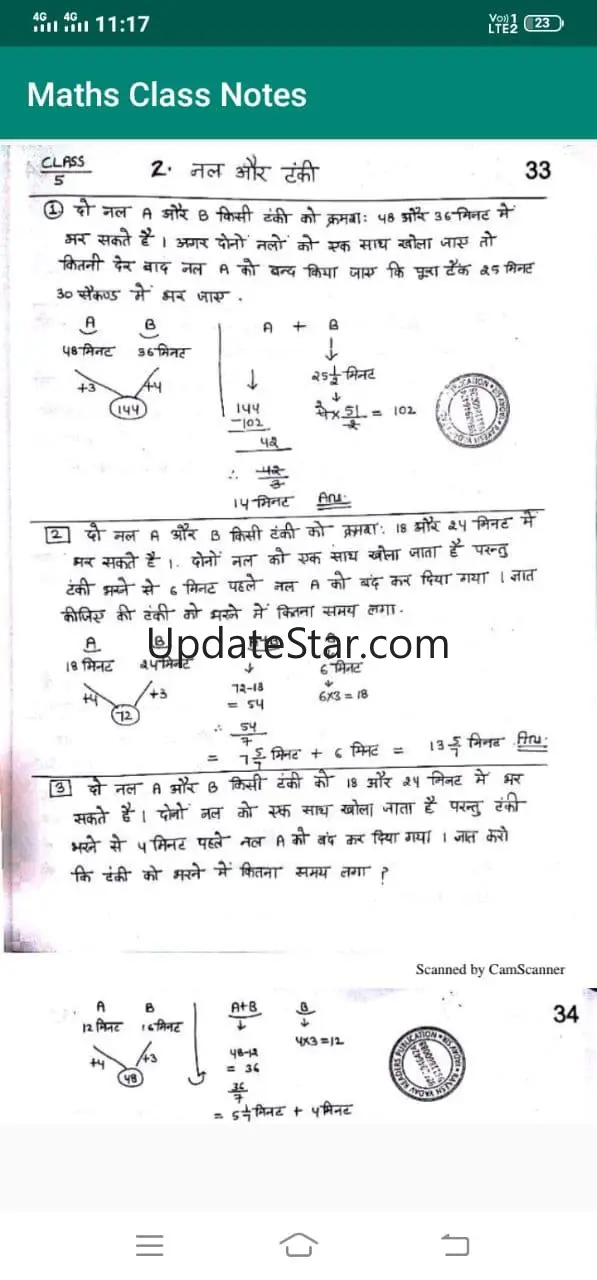 4G 4G 11:17 Vo)) 1 LTE2 23
Maths Class Notes
CLASS 5 2. नल और टंकी 33
① दो नल A और B किसी टंकी को क्रमशः 48 और 36 मिनट में
भर सकते है । अगर दोनों नलों को एक साथ खोला जाए तो
कितनी देर बाद नल A को बन्द किया जाए कि पूरा टैंक 25 मिनट
30 सैकण्ड में भर जाए .
A B A + B
48 मिनट 36 मिनट ↓
↓ 25 1/2 मिनट
+3 +4 ↓
144 144 × 51/2 = 102
-102
42
∴ 42/3
14 मिनट Ans.
2 दो नल A और B किसी टंकी को क्रमशः 18 और 24 मिनट में
भर सकते है । दोनों नल को एक साथ खोला जाता है परन्तु
टंकी भरने से 6 मिनट पहले नल A को बंद कर दिया गया । ज्ञात
कीजिए की टंकी को भरने में कितना समय लगा .
UpdateStar.com
A B
18 मिनट 24 मिनट ↓ 6 मिनट
+4 +3 72-18 ↓
72 = 54 6×3 = 18
∴ 54/7
= 7 5/7 मिनट + 6 मिनट = 13 5/7 मिनट Ans.
3 दो नल A और B किसी टंकी को 18 और 24 मिनट में भर
सकते है । दोनों नल को एक साथ खोला जाता है परन्तु टंकी
भरने से 4 मिनट पहले नल A को बंद कर दिया गया । ज्ञात करो
कि टंकी को भरने में कितना समय लगा ?
Scanned by CamScanner
34
A B A+B B
12 मिनट 16 मिनट ↓ ↓
+4 +3 48-12 4×3=12
48 = 36
36/7
= 5 1/7 मिनट + 4 मिनट